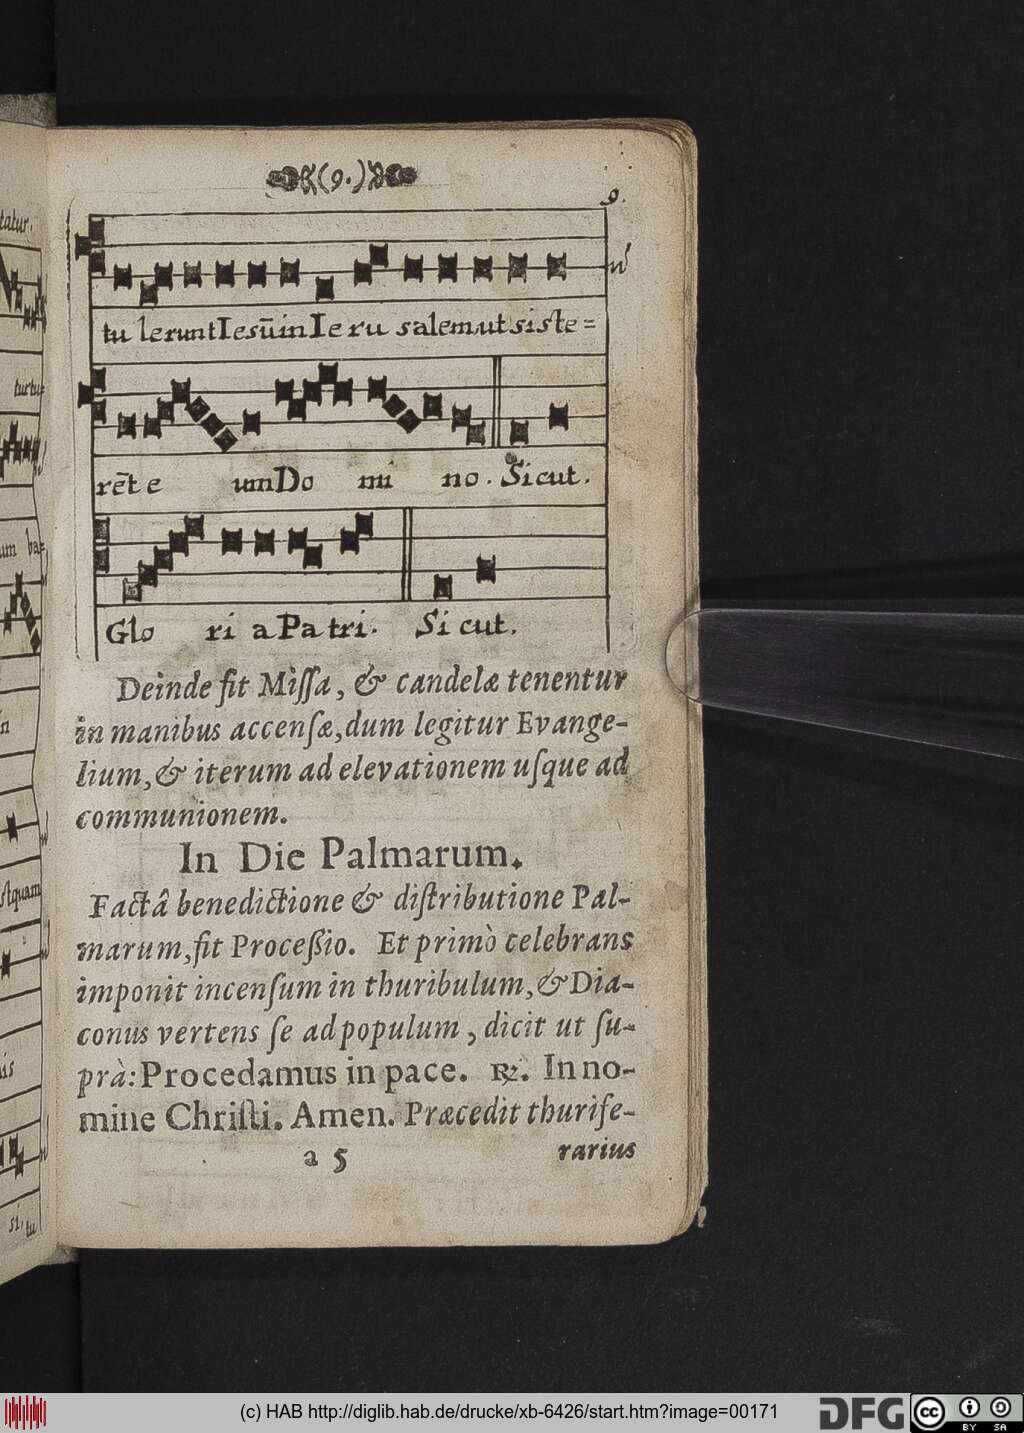 (9.)
9.
tu leruntIesūinIeru salemutsiste=
rēte umDo mi no. Sicut.
Glo ri aPatri. Sicut.
Deinde fit Miſſa, & candelæ tenentur
in manibus accenſæ, dum legitur Evange-
lium, & iterum ad elevationem uſque ad
communionem.
In Die Palmarum.
Factâ benedictione & diſtributione Pal-
marum, fit Proceßio. Et primò celebrans
imponit incenſum in thuribulum, & Dia-
conus vertens ſe ad populum, dicit ut ſu-
prà: Procedamus in pace. ℟. In no-
mine Chriſti. Amen. Præcedit thurife-
a 5 rarius
tatur.
turtu=
um ba=
in
ſtquam
is
si, tu
(c) HAB http://diglib.hab.de/drucke/xb-6426/start.htm?image=00171
DFG
cc BY SA